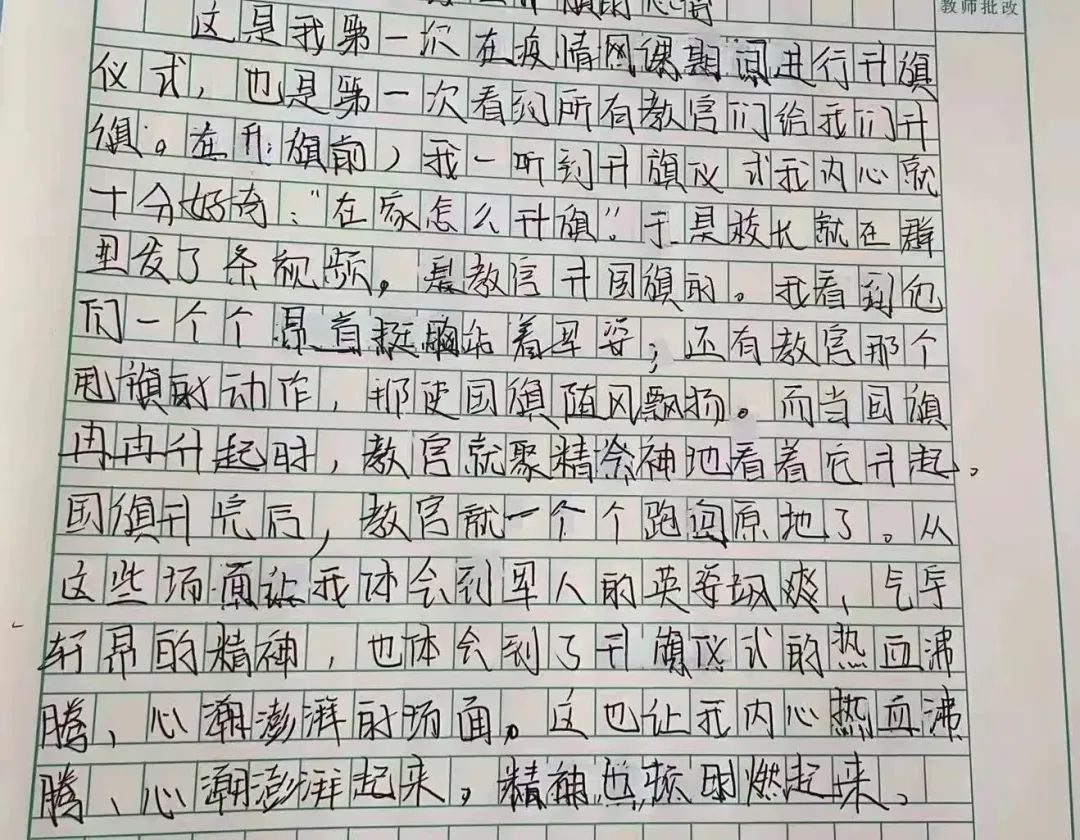 教师批改
旗的心情
这是我第一次在疫情网课期间进行升旗
仪式，也是第一次看到所有教官们给我们升
旗。在升旗前，我一听到升旗仪式我内心就
十分好奇：“在家怎么升旗”。于是校长就在群
里发了条视频。是教官升国旗的。我看到他
们一个个昂首挺胸站着军姿；还有教官那个
甩旗的动作，那使国旗随风飘扬。而当国旗
冉冉升起时，教官就聚精会神地看着它升起。
国旗升完后，教官就一个个跑回原地了。从
这些场面让我体会到军人的英姿飒爽、气宇
轩昂的精神，也体会到了升旗仪式的热血沸
腾、心潮澎湃的场面。这也让我内心热血沸
腾、心潮澎湃起来。精神也顿时燃起来。